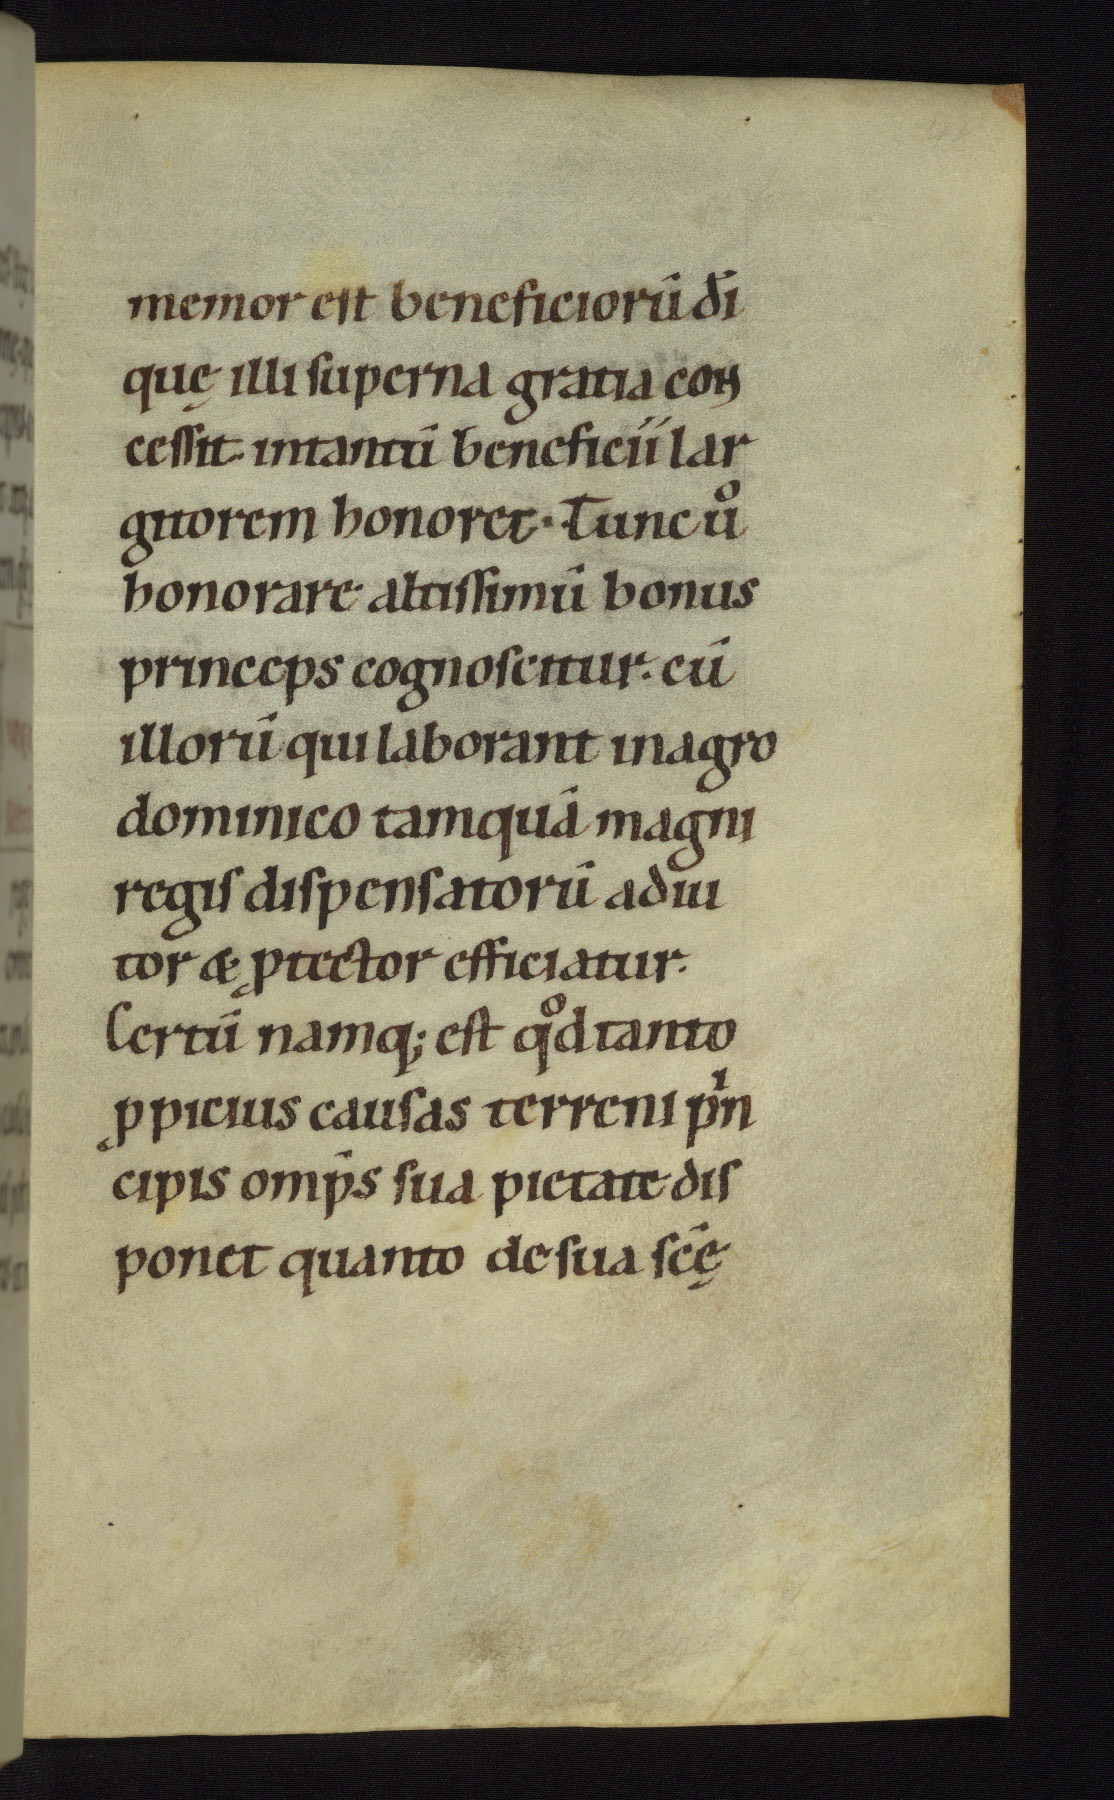 memor est beneficiorū dī
quę illi superna gratia con
cessit. intantū beneficii lar
gitorem honoret. Tunc ů
honorare altissimū bonus
princeps cognoscitur. cū
illorū qui laborant in agro
dominico tamquā magni
regis dispensatorū adiu
tor & ꝓtector efficiatur.
Certū namq; est qͦd tanto
ꝓpicius causas terreni pⁱn
cipis omp̄s sua pietate dis
ponet quanto de sua scę̄